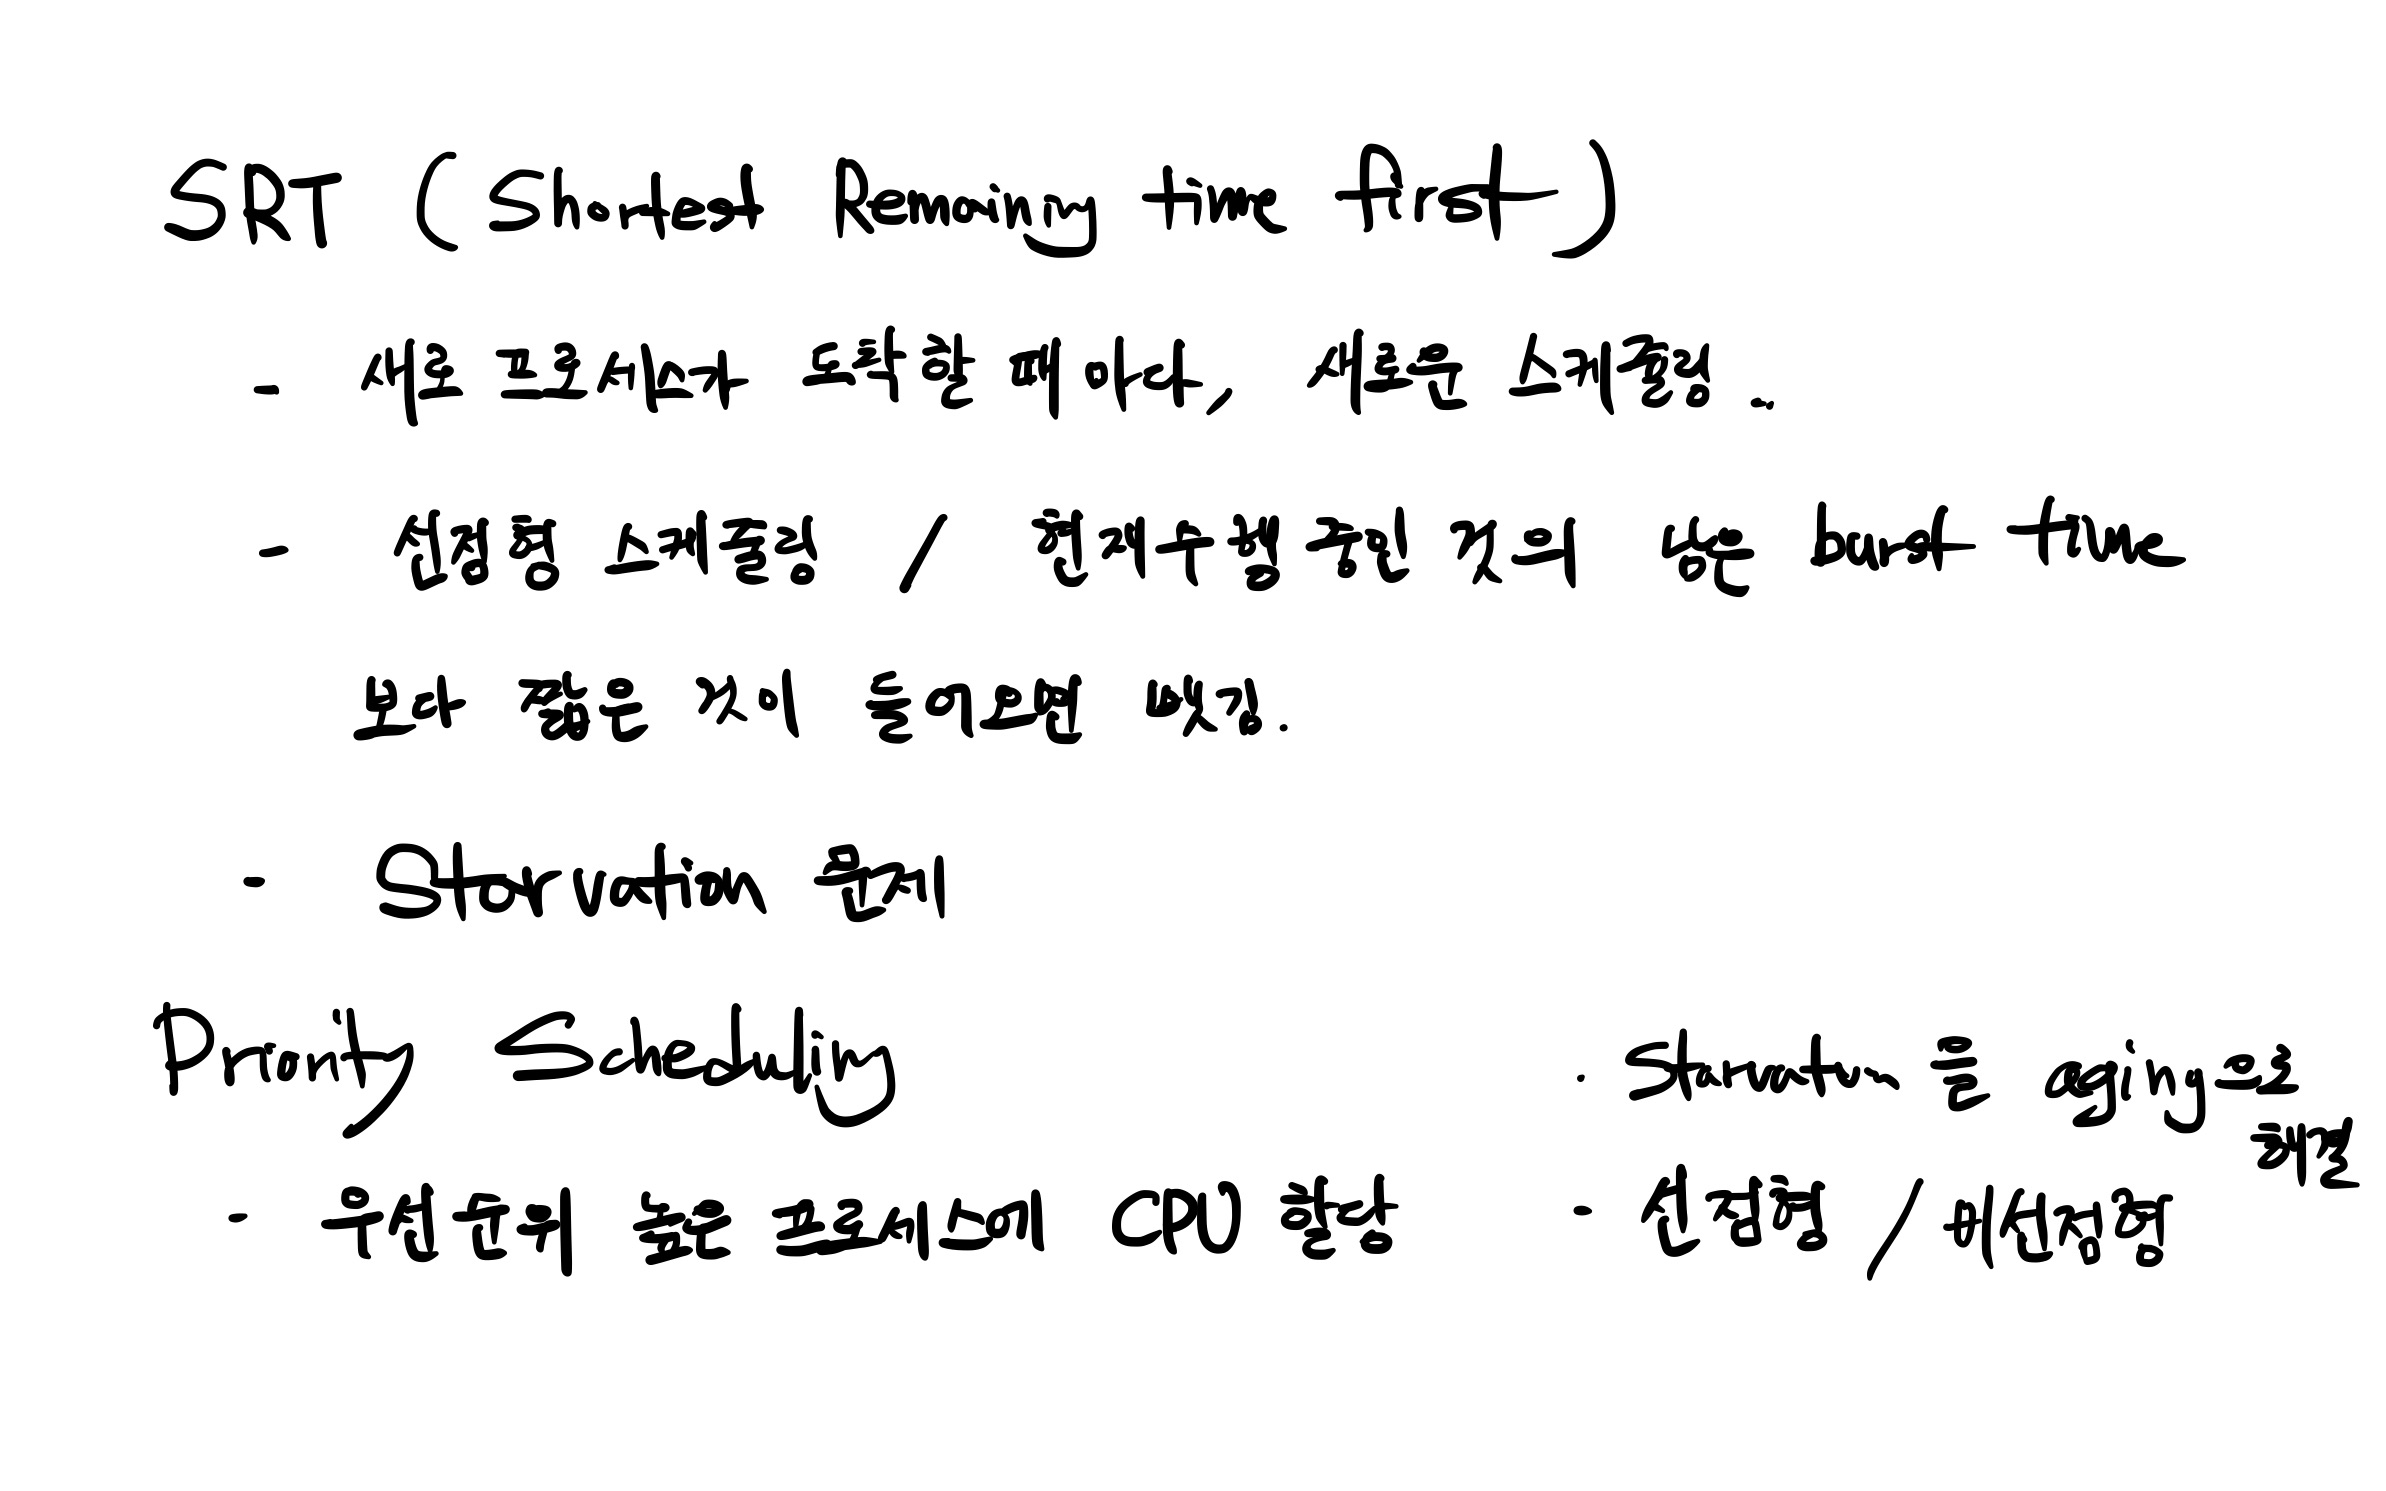 SRT ( Shortest Remaining time first )
- 새로 프로세스가 도착할 때마다, 새로운 스케줄링..
- 선점형 스케줄링 / 현재 수행중인 것의 남은 burst time
보다 짧은 것이 들어오면 뺏김.
- Starvation 문제
Priority Scheduling
- 우선순위 높은 프로세스에 CPU 할당
· Starvation은 aging으로
해결
- 선점형 / 비선점형